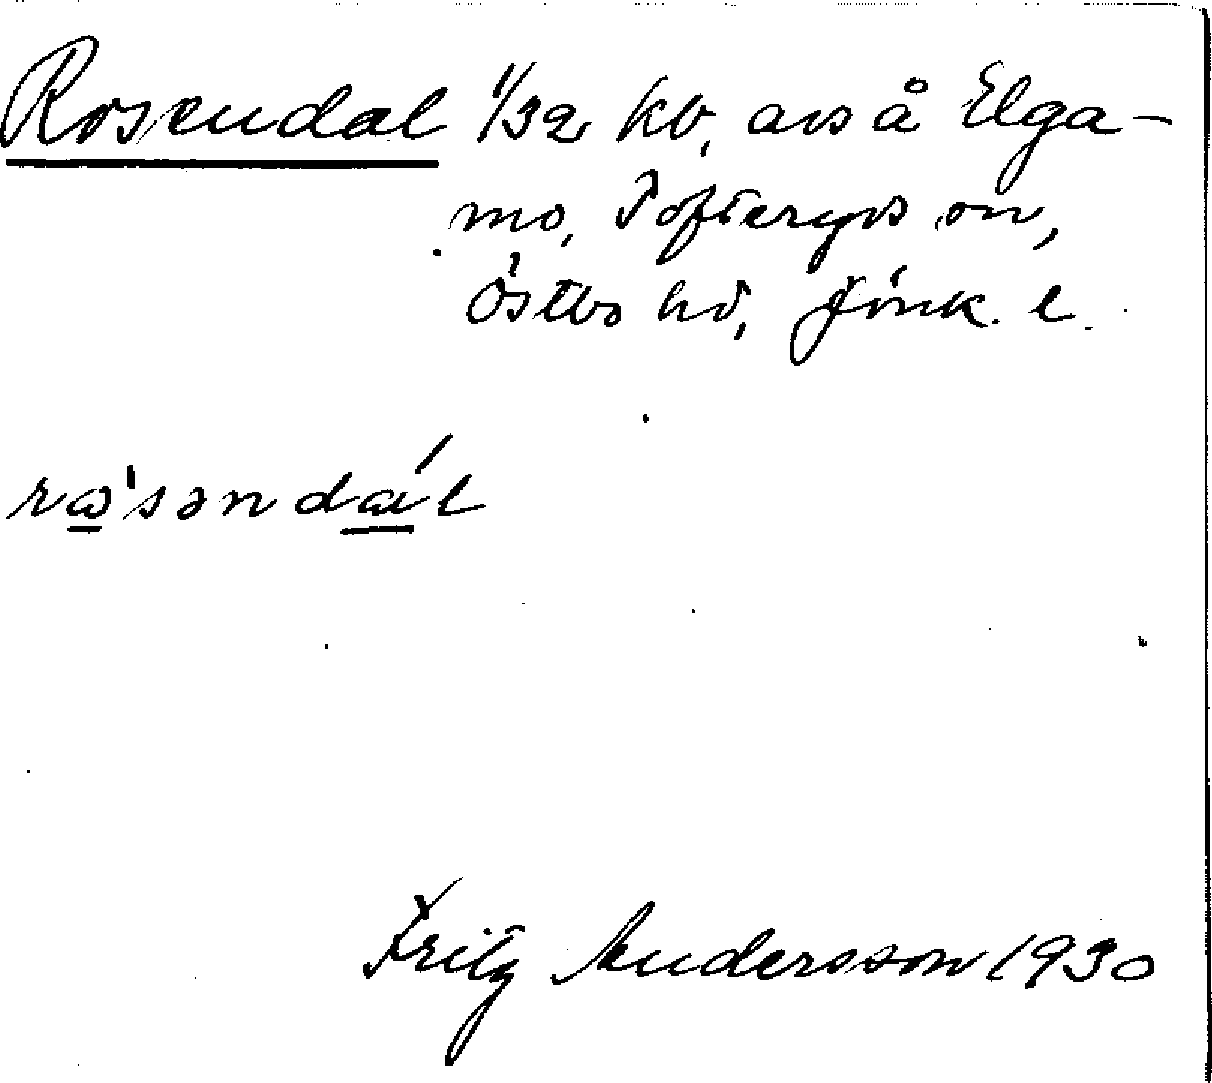 Rosendal 1/32 kb, avs å Elga-
mo, Tofteryds sn,
Östbo hd, Jönk. l.
rɷ'səndá̱l
Fritz Andersson 1930